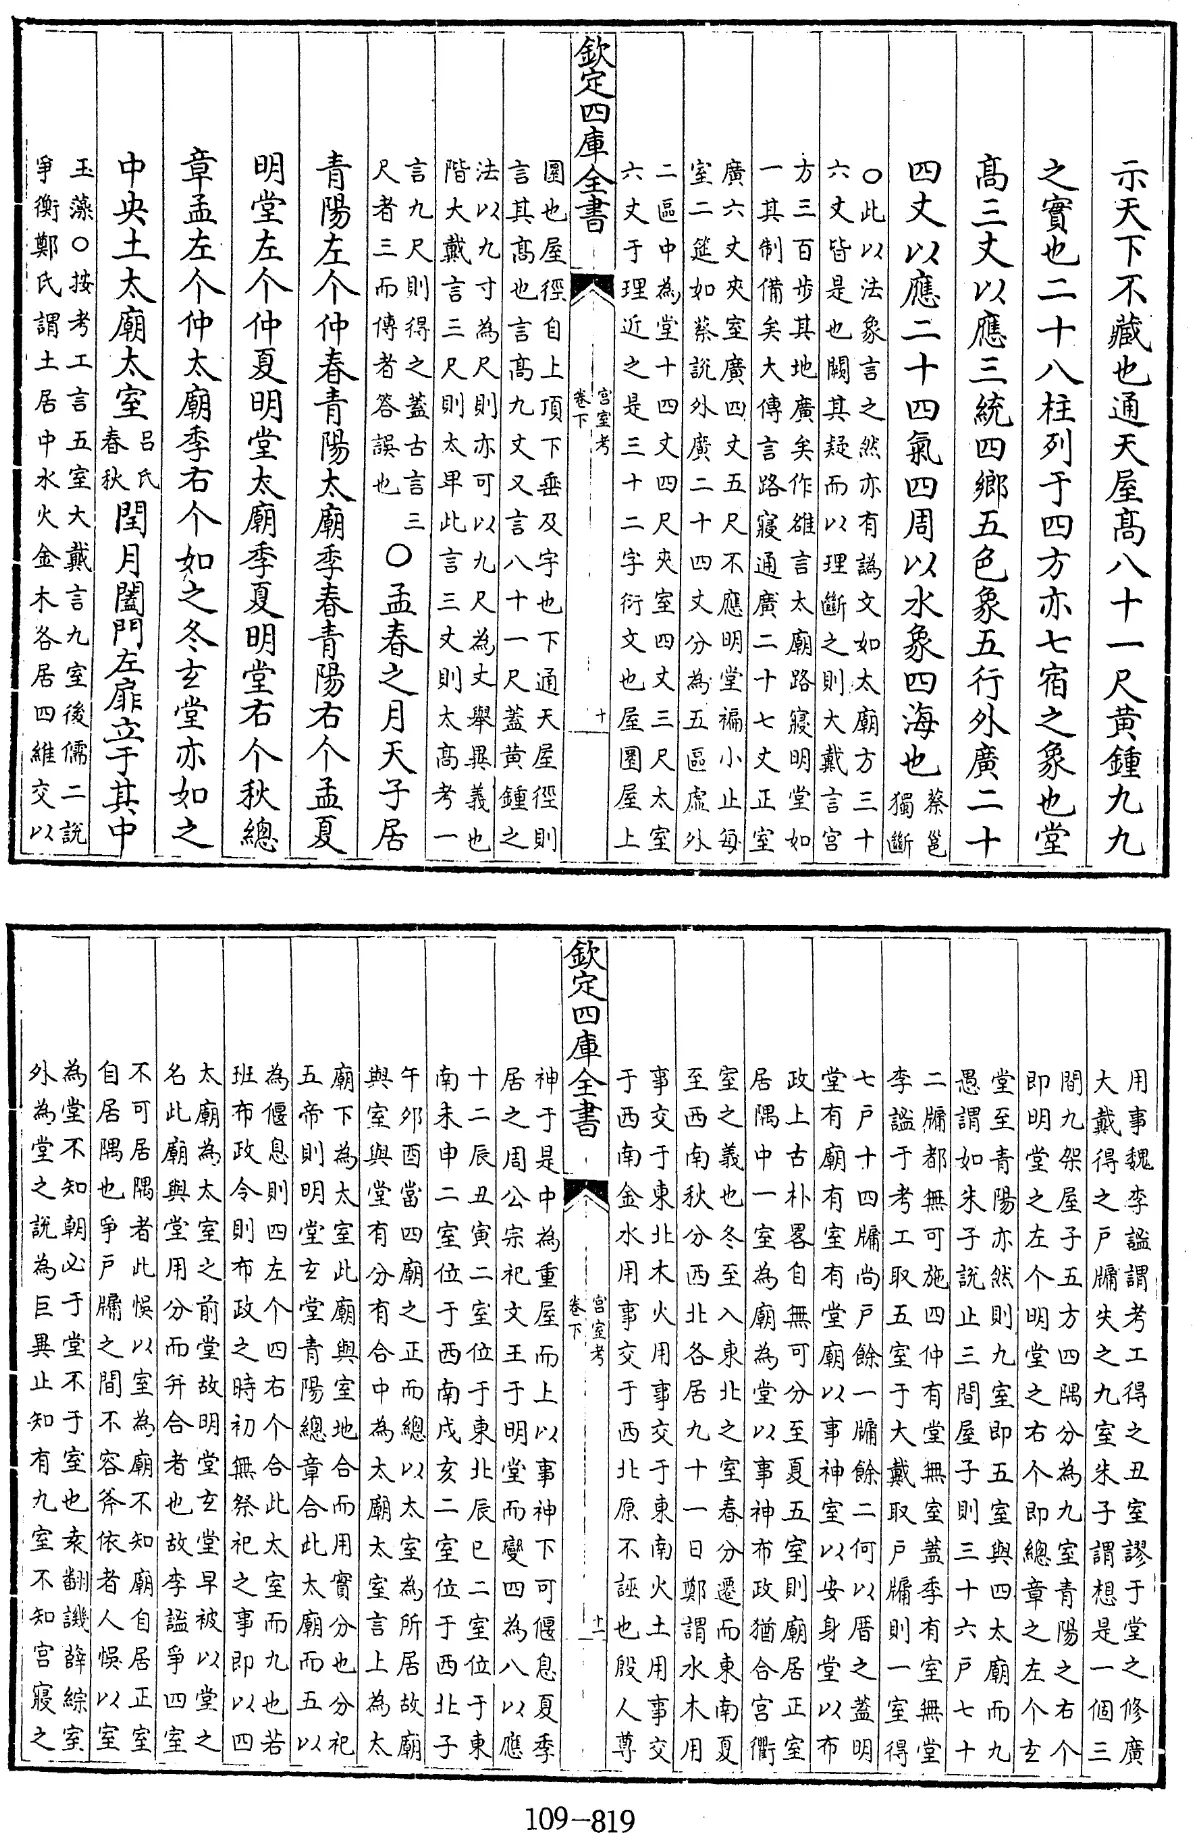 示天下不藏也通天屋髙八十一尺黄鍾九九
之實也二十八柱列于四方亦七宿之象也堂
髙三丈以應三統四鄉五色象五行外廣二十
四丈以應二十四氣四周以水象四海也蔡邕獨斷
○此以法象言之然亦有譌文如太廟方三十
六丈皆是也闕其疑而以理斷之則大戴言宫
方三百步其地廣矣作雒言太廟路寢明堂如
一其制備矣大傳言路寢通廣二十七丈正室
廣六丈夾室廣四丈五尺不應明堂褊小止每
室二筵如蔡說外廣二十四丈分為五區虛外
二區中為堂十四丈四尺夾室四丈三尺太室
六丈于理近之是三十二字衍文也屋圜屋上
欽定四庫全書
宫室考
卷下
十
圜也屋徑自上頂下垂及字也下通天屋徑則
言其髙也言髙九丈又言八十一尺蓋黄鍾之
法以九寸為尺則亦可以九尺為丈舉異義也
階大戴言三尺則太卑此言三丈則太髙考一
言九尺則得之蓋古言三
尺者三而傳者答誤也
○孟春之月天子居
青陽左个仲春青陽太廟季春青陽右个孟夏
明堂左个仲夏明堂太廟季夏明堂右个秋總
章孟左个仲太廟季右个如之冬玄堂亦如之
中央土太廟太室吕氏春秋閏月闔門左扉立于其中
玉藻○按考工言五室大戴言九室後儒二說
爭衡鄭氏謂土居中水火金木各居四維交以
用事魏李謐謂考工得之丑室謬于堂之修廣
大戴得之戶牖失之九室朱子謂想是一個三
間九架屋子五方四隅分為九室青陽之右个
即明堂之左个明堂之右个即總章之左个玄
堂至青陽亦然則九室即五室與四太廟而九
愚謂如朱子說止三間屋子則三十六戶七十
二牖都無可施四仲有堂無室蓋季有室無堂
李謐于考工取五室于大戴取戶牖則一室得
七戶十四牖尚戶餘一牖餘二何以厝之蓋明
堂有廟有室有堂廟以事神室以安身堂以布
政上古朴畧自無可分至夏五室則廟居正室
居隅中一室為廟為堂以事神布政猶合宫衢
室之義也冬至入東北之室春分遷而東南夏
至西南秋分西北各居九十一日鄭謂水木用
事交于東北木火用事交于東南火土用事交
于西南金水用事交于西北原不誣也殷人尊
欽定四庫全書
宫室考
卷下
十一
神于是中為重屋而上以事神下可偃息夏季
居之周公宗祀文王于明堂而變四為八以應
十二辰丑寅二室位于東北辰巳二室位于東
南未申二室位于西南戌亥二室位于西北子
午夘酉當四廟之正而總以太室為所居故廟
與室與堂有分有合中為太廟太室言上為太
廟下為太室此廟與室地合而用實分也分祀
五帝則明堂玄堂青陽總章合此太廟而五以
為偃息則四左个四右个合此太室而九也若
班布政令則布政之時初無祭祀之事即以四
太廟為太室之前堂故明堂玄堂早被以堂之
名此廟與堂用分而并合者也故李謐爭四室
不可居隅者此悞以室為廟不知廟自居正室
自居隅也爭戶牖之間不容斧依者人悞以室
為堂不知朝必于堂不于室也袁翻譏薛綜室
外為堂之說為巨異止知有九室不知宫寢之
109-819